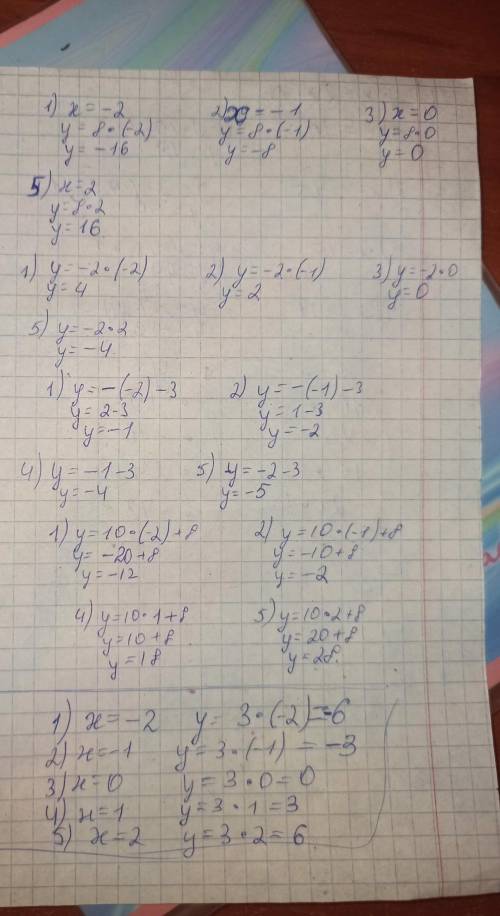 1) x = -2 2) x = -1 3) x = 0
y = 8 · (-2) y = 8 · (-1) y = 8 · 0
y = -16 y = -8 y = 0
5) x = 2
y = 8 · 2
y = 16
1) y = -2 · (-2) 2) y = -2 · (-1) 3) y = -2 · 0
y = 4 y = 2 y = 0
5) y = -2 · 2
y = -4
1) y = -(-2) - 3 2) y = -(-1) - 3
y = 2 - 3 y = 1 - 3
y = -1 y = -2
4) y = -1 - 3 5) y = -2 - 3
y = -4 y = -5
1) y = 10 · (-2) + 8 2) y = 10 · (-1) + 8
y = -20 + 8 y = -10 + 8
y = -12 y = -2
4) y = 10 · 1 + 8 5) y = 10 · 2 + 8
y = 10 + 8 y = 20 + 8
y = 18 y = 28
1) x = -2 y = 3 · (-2) = -6
2) x = -1 y = 3 · (-1) = -3
3) x = 0 y = 3 · 0 = 0
4) x = 1 y = 3 · 1 = 3
5) x = 2 y = 3 · 2 = 6